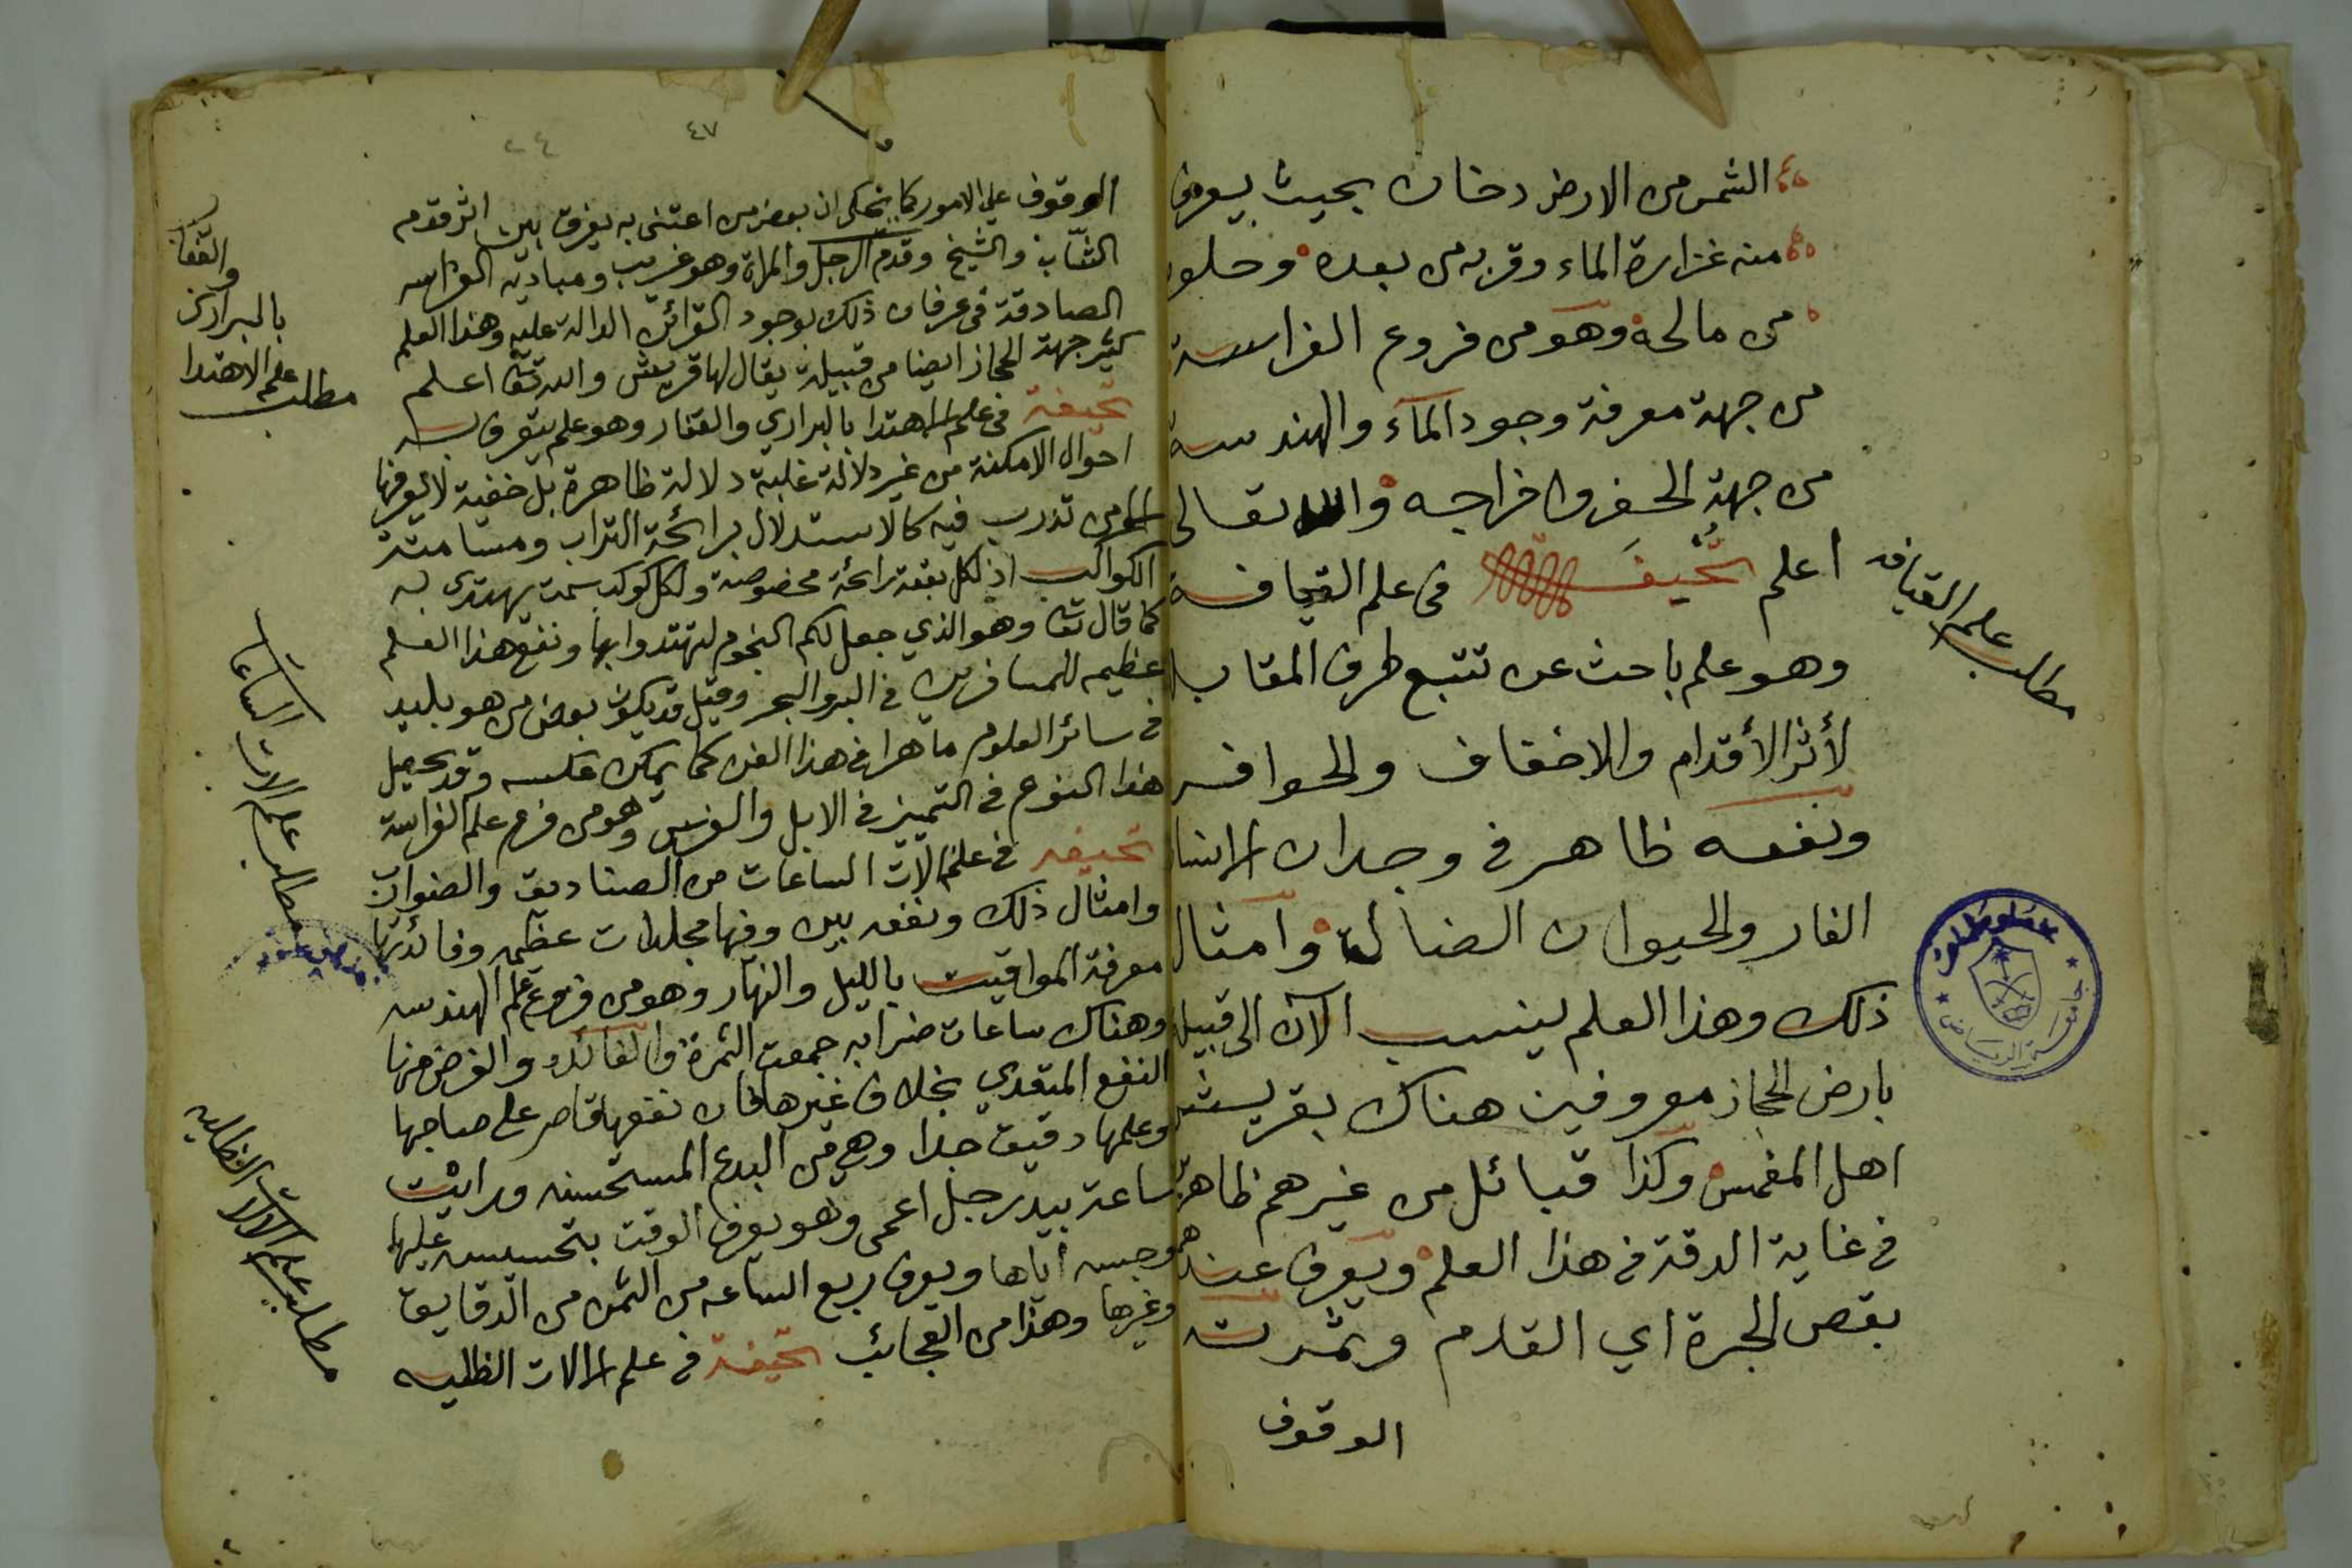 الشمس من الارض دخان بحيث يعرف
منه غزارة الماء وقربه من بعده وحلوه
من مالحه وهو من فروع الفراسة
من جهة معرفة وجود الماء والهندسة
من جهة الحفر واخراجه والله تعالى
اعلم تحيفة في علم القيافة
وهو علم باحث عن تتبع طرق المقاب
لأثر الأقدام والاخفاف والحوافر
ونفعه ظاهر في وجدان الانسان
الفار والحيوان الضالة وامثال
ذلك وهذا العلم ينسب الآن الى قبيلة
بارض الحجاز معروفين هناك بقريش
اهل المغمس وكذا قبائل من غيرهم ظاهر
في غاية الدقة في هذا العلم ويعرف عندهم
بقص الجرة اي القدم وثمرته
الوقوف
مطلب علم القيافه
جامعة الرياض
٤٧
٢٤
الوقوف علي الامور كما يحكى ان بعض من اعتنى به يفرق بين اثر قدم
الشاب والشيخ وقدم الرجل والمراة وهو غريب ومباديه الفراسه
الصادقة في عرفان ذلك بوجود القرائن الدالة عليه وهذا العلم
كثير جهة الحجاز ايضا من قبيلة يقال لها قريش والله تعا اعلم
تحيفة في علم الاهتدا بالبراري والقفار وهو علم يتعرف به
احوال الامكنة من غير دلالة عليه دلالة ظاهرة بل خفية لا يعرفها
الا من تدرب فيه كالاستدلال برائحة التراب ومسامتة
الكواكب اذ لكل بقعة رائحة مخصوصة ولكل كوكب سمت يهتدى به
كما قال تعا وهو الذي جعل لكم النجوم لتهتدوا بها ونفع هذا العلم
عظيم للمسافرين في البر والبحر وقيل قد يكون بعض من هو بليد
في سائر العلوم ماهرا في هذا الفن كما يمكن عكسه وقد يحصل
هذا النوع في التميز في الابل والفرس وهو من فرع علم الفراسة
تحيفه في علم الات الساعات من الصناديق والضوارب
وامثال ذلك ونفعه بين وفيها مجلدات عظيمه وفائدتها
معرفة المواقيت بالليل والنهار وهو من فروع علم الهندسه
وهناك ساعات ضرابه جمعت الثمرة والفائده والغرض منها
النفع المتعدي بخلاف غيرها فان نفعها قاصر على صاحبها
وعلمها دقيق جدا وهي من البدع المستحسنه ورايت
ساعة بيد رجل اعمى وهو يعرف الوقت بتحسيسه عليها
وجسه اياها ويعرف ربع الساعه من الثمن من الدقايق
وغيرها وهذا من العجائب تحيفة في علم الالات الظليه
مطلب علم الاهتدا
بالبراري
والقفار
مطلب علم الات الساعات
مطلب علم الالات الظليه